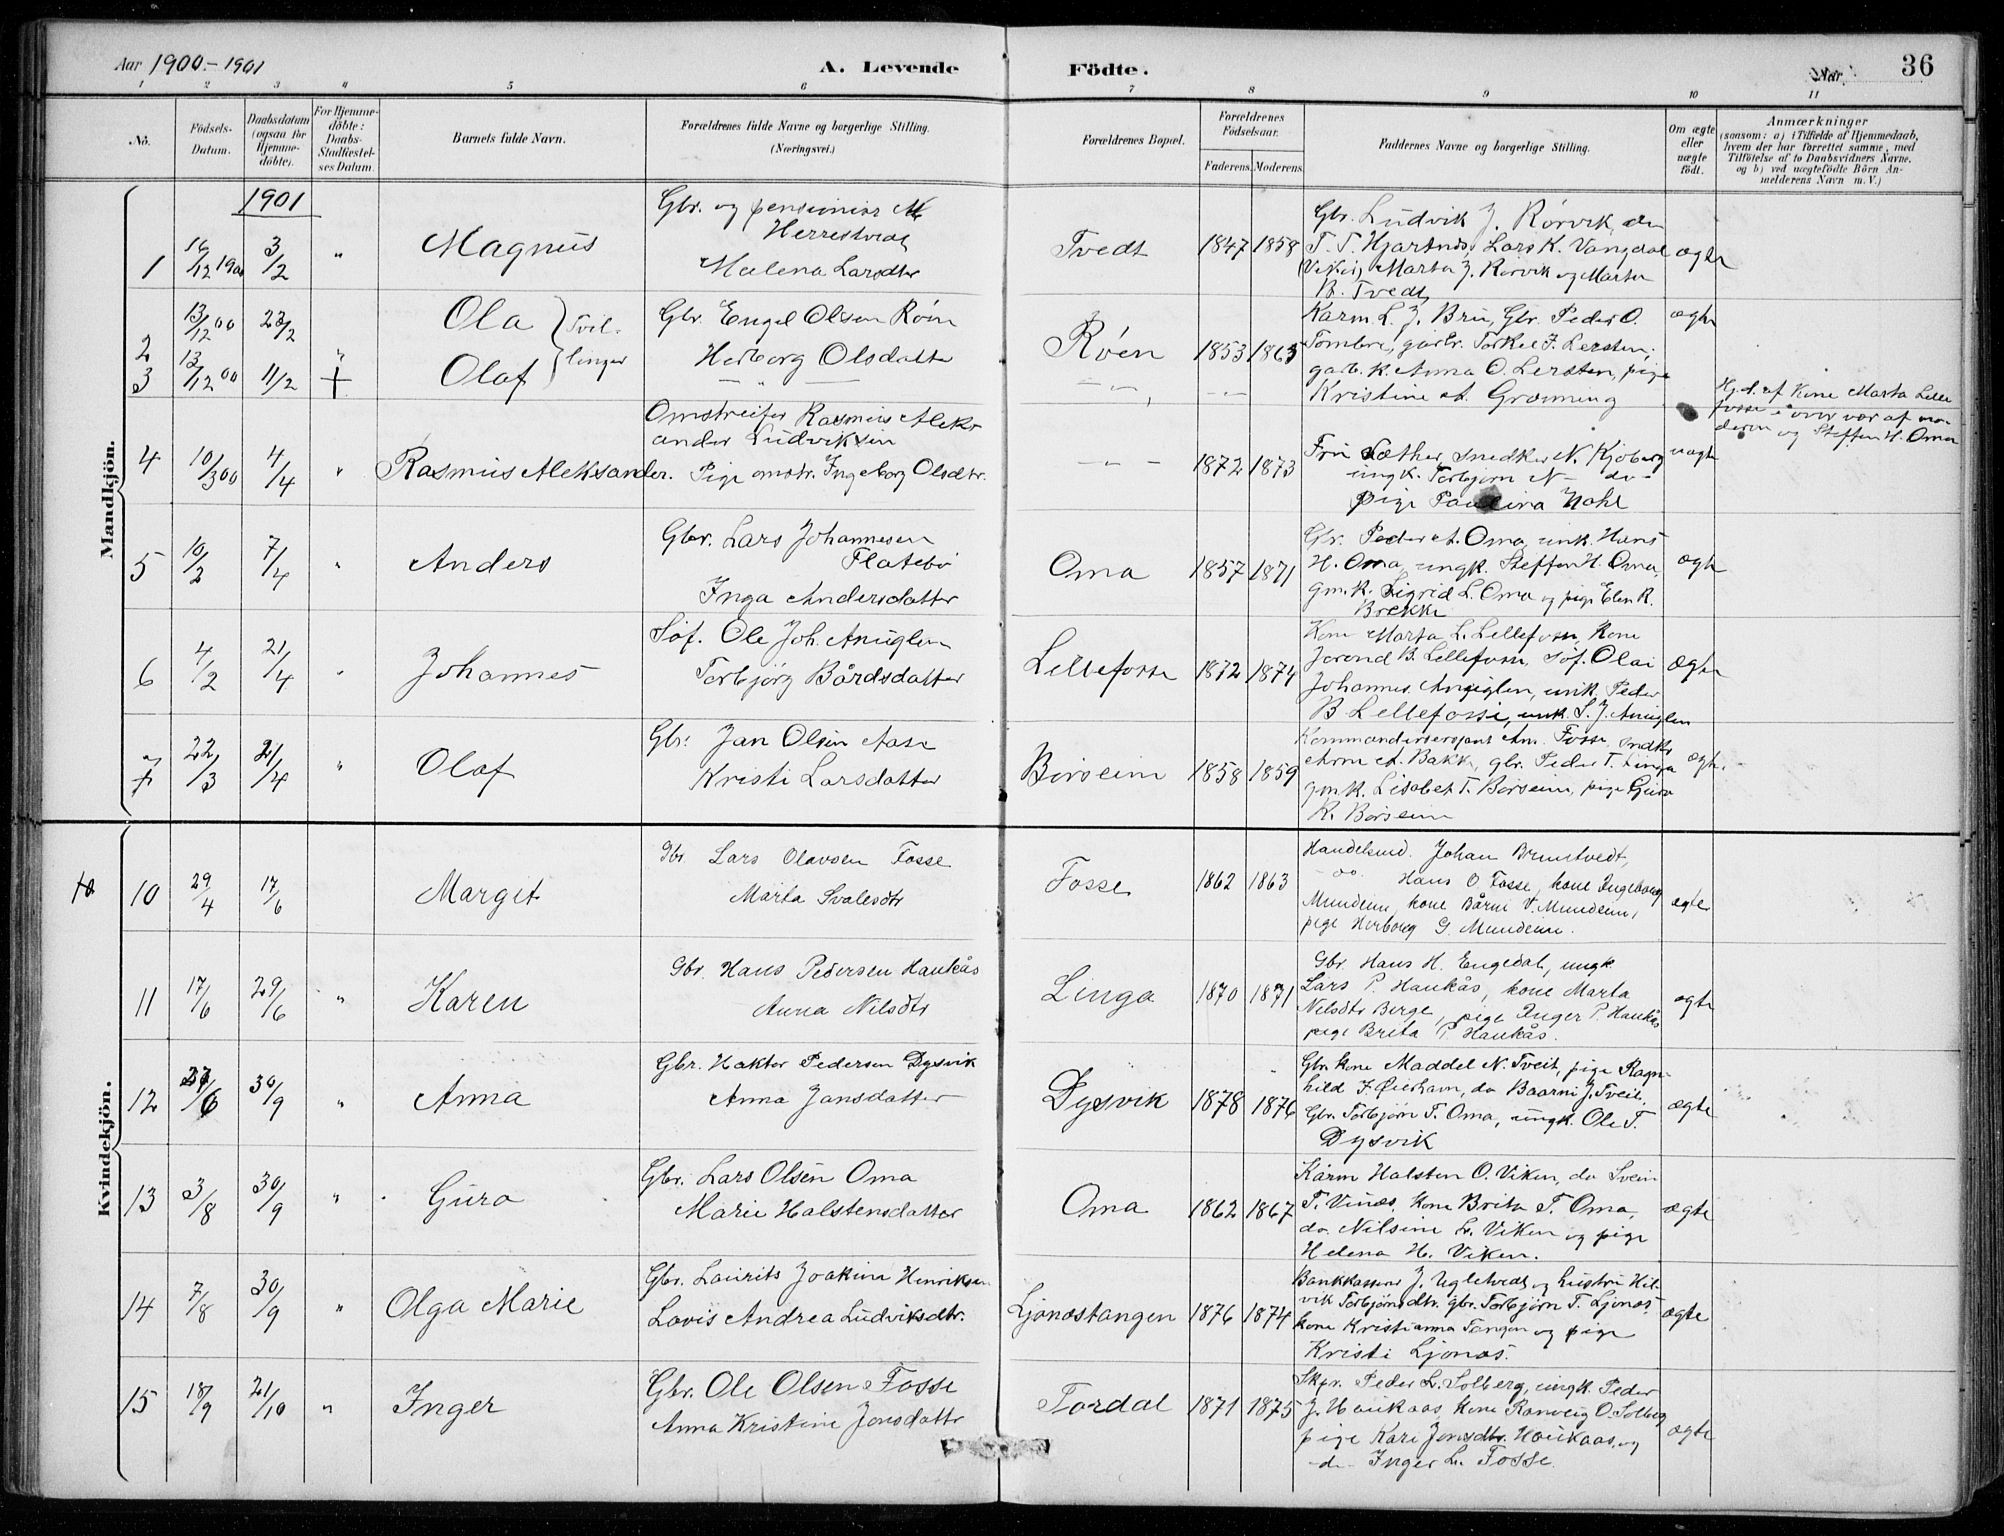 Aar 1900.-1901
A. Levende Födte.
Aar
36
1 2 3 4 5 6 7 8 9 10 11
No.
Födsels-Datum.
Daabsdatum (ogsaa for Hjemmedöbte).
For Hjemmedöbte: Daabs-Stadfæstelses Datum.
Barnets fulde Navn.
Forældrenes fulde Navne og borgerlige Stilling. (Næringsvei.)
Forældrenes Bopæl.
Forældrenes Födselsaar.
Faderens. Moderens.
Faddernes Navne og borgerlige Stilling.
Om ægte eller uægte födt.
Anmærkninger
(saasom: a) i Tilfælde af Hjemmedaab, hvem der har forrettet samme, med Tilföielse af to Daabsvidners Navne. og b) ved uægtefödte Börn Anmelderens Navn m. V.)
Mandkjön.
1901
1 16/12 1900 3/2 " Magnus
Gbr. og pensionist
Herrestvedt
Malena Larsdtr
Tvedt 1847 1858
Gbr. Ludvik J. Rørvik,
Lars K. Vangdal
Marta J. Rørvik og Marta
B. Tvedt
ægte
2 13/12 00 23/2 " Ola } Tvil-
3 13/12 00 11/2 + Olaf } linger
Gbr. Engel Olsen Röen
Herborg Olsdatter
Röen 1853 1865
Kårm. L. J. Bru, Gbr. Peder O.
Tombre, gårbr. Torkel J. Lersten,
garb. k. Anna O. Lersten, pige
Kristine A. Grønning
ægte
Hj.d. af Kone Marta Lille
fosse i overvær af mo-
deren og Steffen H. Oma
4 10/3 00 4/4 " Rasmus Aleksander.
Omstreifer Rasmus Aleks
ander Ludviksen
Pige omstr. Ingeborg Olsdtr.
— " — 1872 1873
Fru Sæther, snedker N. Kjoberg
ungk. Torbjørn N - do -
pige Paulina Hohl
uægte
5 10/2 7/4 " Anders
Gbr. Lars Johannesen
Flatebö
Inga Andersdatter
Oma 1857 1871
Gbr. Peder A. Oma, unk. Hans
H. Oma, ungk. Steffen H. Oma,
gm.k. Sigrid L. Oma og pige Elen R.
Brekke
ægte
6 4/2 21/4 " Johannes
Söf. Ole Joh. Anuglen
Torbjörg Bårdsdatter
Lillefosse 1872 1874
Kone Marta L. Lillefosse, Kone
Jorend B. Lillefosse, söf. Olai
Johannes. Anuglen, unk. Peder
B Lillefosse, unk. S. J. Anuglen
ægte
7 22/3 21/4 " Olaf
Gbr. Jan Olsen Aase
Kristi Larsdatter
Börseim 1858 1859
Kommandersersjant Am. Fosse, snedk.
Arne A. Bakk, gbr. Peder T. Linga
gm.k. Lisabet T. Börseim, pige Guro
K. Börseim
ægte.
Kvindekjön.
10 10 29/4 17/6 Margit
Gbr. Lars Olavsen Fosse
Marta Svalesdtr
Fosse 1862 1863
Handelsmd. Johan Brustvedt,
- do. Hans O Fosse, kone Ingeborg
Mundeim, kone Bårni V. Mundeim,
pige Herborg G. Mundeim.
ægte
11 17/6 29/6 " Karen
Gbr. Hans Pedersen Haukås
Anna Nilsdtr
Linga 1870 1871
Gbr. Hans H. Engedal, ungk.
Lars P. Haukås, kone Marta
Nilsdtr Berge, pige Inger P. Haukås
pige Brita P Haukås.
ægte
12 27/6 30/9 " Anna
Gbr. Haktor Pedersen Dysvik
Anna Jansdatter
Dysvik 1878 1876
Gbr kone Maddel N. Tveit, pige Ragn-
hild J. Øierhavn, do Baarni J. Tveit.
Gbr. Torbjørn T. Oma, ungk. Ole T.
Dysvik
ægte
13 3/8 30/9 " Guro
Gbr. Lars Olsen Oma
Marie Halstensdatter
Oma 1862 1867
Kårm Halsten O. Viken, do Svein
T. Vinæs, kone Brita T. Oma,
do. Nilsine L. Viken og pige
Helena H. Viken.
ægte
14 7/8 30/9 " Olga Marie
Gbr. Laurits Joakim Henriksen
Lovis Andrea Ludviksdtr.
Ljonæstangen 1876 1874
Bankkasserer J. Ugletvedt og hustru Hil-
vik Torbjørnsdtr. gbr. Torbjørn T. Ljonæs
kone Kristianna Tangen og pige
Kristi Ljonæs.
ægte
15 18/9 21/10 " Inger
Gbr. Ole Olsen Fosse
Anna Kristine Jonsdatter
Tordal 1871 1875
Skpr. Peder L. Solberg, ungk. Peder
J. Haukaas, kone Ranveig O. Solberg
pige Kari Jonsdtr. Haukaas, og
-d- Inger L. Fosse.
ægte